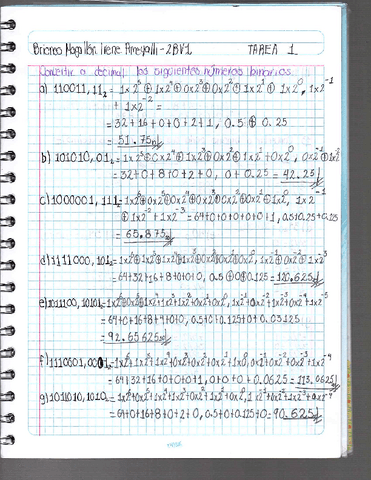 Briones Magallón Irene Areyalli - 2BV1 TAREA 1
Convertir a decimal los siguientes números binarios
a) 110011,11₂ = 1x2⁵⊕1x2⁴⊕0x2³⊕0x2²⊕1x2¹⊕ 1x2⁰, 1x2⁻¹
+ 1x2⁻² =
= 32 + 16 + 0 + 0 + 2 + 1, 0.5 ⊕ 0.25
= 51.75
b) 101010,01₂ = 1x2⁵⊕0x2⁴⊕1x2³⊕0x2²⊕1x2¹+0x2⁰, 0x2⁻¹⊕1x2⁻²
= 32+0+8+0+2+0, 0+0.25 = 42.25
c) 1000001,111₂ = 1x2⁶⊕0x2⁵⊕0x2⁴⊕0x2³⊕0x2²⊕0x2¹⊕1x2⁰, 1x2⁻¹
⊕1x2⁻²+1x2⁻³ = 64+0+0+0+0+0+1, 0.5+0.25+0.125
= 65.875
d) 1111000,101₂ = 1x2⁶⊕1x2⁵⊕1x2⁴⊕1x2³⊕0x2²⊕0x2¹⊕0x2⁰, 1x2⁻¹⊕0x2⁻²⊕1x2⁻³
= 64+32+16+8+0+0+0, 0.5⊕0⊕0.125 = 120.625
e) 1011100,10101₂ = 1x2⁶+0x2⁵+1x2⁴+1x2³+1x2²+0x2¹+0x2⁰, 1x2⁻¹+0x2⁻²+1x2⁻³+0x2⁻⁴+1x2⁻⁵
= 64+0+16+8+4+0+0, 0.5+0+0.125+0+0.03125
= 92.65625
f) 1110001,0001₂ = 1x2⁶+1x2⁵+1x2⁴+0x2³+0x2²+0x2¹+1x2⁰, 0x2⁻¹+0x2⁻²+0x2⁻³+1x2⁻⁴
= 64+32+16+0+0+0+1, 0+0+0+0.0625 = 113.0625
g) 1011010,1010₂ = 1x2⁶+0x2⁵+1x2⁴+1x2³+0x2²+1x2¹+0x2⁰, 1x2⁻¹+0x2⁻²+1x2⁻³+0x2⁻⁴
= 64+0+16+8+0+2+0, 0.5+0+0.125+0 = 90.625